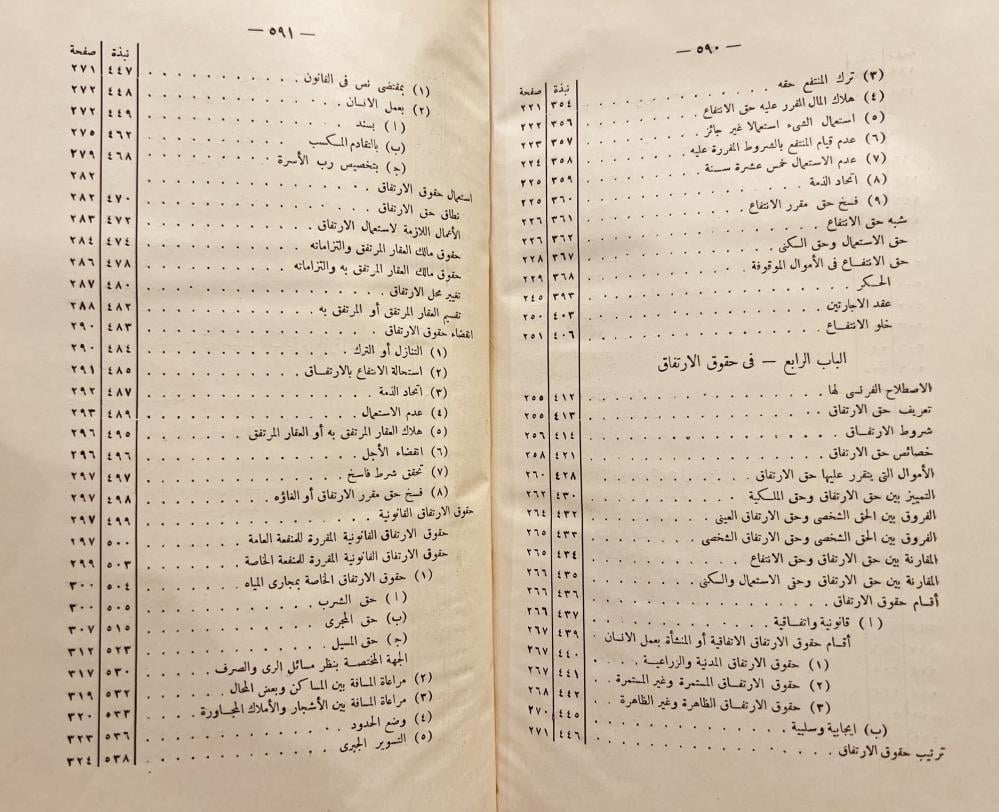 — ٥٩٠ —
نبذة صفحة
(٣) ترك المنتفع حقه . . . . . . . . . . ٣٥٤ ٢٢١
(٤) هلاك المال المقرر عليه حق الانتفاع . . . . . . ٣٥٦ ٢٢٢
(٥) استعمال الشىء استعمالا غير جائز . . . . . . ٣٥٧ ٢٢٣
(٦) عدم قيام المنتفع بالشروط المقررة عليه . . . . . . ٣٥٨ ٢٢٤
(٧) عدم الاستعمال خمس عشرة سنة . . . . . . ٣٥٩ ٢٢٥
(٨) اتحاد الذمة . . . . . . . . . . ٣٦٠ ٢٢٥
(٩) فسخ حق مقرر الانتفاع . . . . . . . . ٣٦١ ٢٢٦
شبه حق الانتفاع . . . . . . . . . . ٣٦٢ ٢٢٦
حق الاستعمال وحق السكنى . . . . . . . . ٣٦٧ ٢٢٨
حق الانتفاع فى الأموال الموقوفة . . . . . . . . ٣٦٨ ٢٢٩
الحكر . . . . . . . . . . . . ٣٩٣ ٢٤٥
عقد الاجارتين . . . . . . . . . . ٤٠٣ ٢٥٠
خلو الانتفاع . . . . . . . . . . ٤٠٦ ٢٥١
الباب الرابع — فى حقوق الارتفاق
الاصطلاح الفرنسى لها . . . . . . . . . . ٤١٢ ٢٥٥
تعريف حق الارتفاق . . . . . . . . . . ٤١٣ ٢٥٥
شروط الارتفاق . . . . . . . . . . ٤١٤ ٢٥٦
خصائص حق الارتفاق . . . . . . . . . . ٤٢١ ٢٥٨
الأموال التى يتقرر عليها حق الارتفاق . . . . . . ٤٢٨ ٢٦٠
التمييز بين حق الارتفاق وحق الملكية . . . . . . ٤٣٠ ٢٦٢
الفروق بين الحق الشخصى وحق الارتفاق العينى . . . . . . ٤٣٢ ٢٦٤
الفروق بين الحق الشخصى وحق الارتفاق الشخصى . . . . . . ٤٣٣ ٢٦٥
المقارنة بين حق الارتفاق وحق الانتفاع . . . . . . ٤٣٤ ٢٦٥
المقارنة بين حق الارتفاق وحق الاستعمال والسكنى . . . . . . ٤٣٥ ٢٦٦
أقسام حقوق الارتفاق . . . . . . . . . . ٤٣٦ ٢٦٦
(ا) قانونية واتفاقية . . . . . . . . . . ٤٣٧ ٢٦٦
أقسام حقوق الارتفاق الاتفاقية أو المنشأة بعمل الانسان . ٤٣٩ ٢٦٧
(١) حقوق الارتفاق المدنية والزراعية . . . . ٤٤٠ ٢٦٧
(٢) حقوق الارتفاق المستمرة وغير المستمرة . . ٤٤١ ٢٦٧
(٣) حقوق الارتفاق الظاهرة وغير الظاهرة . . ٤٤٢ ٢٦٨
(ب) ايجابية وسلبية . . . . . . . . ٤٤٥ ٢٧٠
ترتيب حقوق الارتفاق . . . . . . . . . . ٤٤٦ ٢٧١
— ٥٩١ —
نبذة صفحة
(١) بمقتضى نص فى القانون . . . . . . . . ٤٤٧ ٢٧١
(٢) بعمل الانسان . . . . . . . . . . ٤٤٨ ٢٧٢
(ا) بسند . . . . . . . . . . ٤٤٩ ٢٧٢
(ب) بالتقادم المكسب . . . . . . . . ٤٦٢ ٢٧٥
(ج) بتخصيص رب الأسرة . . . . . . . . ٤٦٨ ٢٧٩
استعمال حقوق الارتفاق . . . . . . . . . . ٢٨٢
نطاق حق الارتفاق . . . . . . . . . . ٤٧٠ ٢٨٢
الأعمال اللازمة لاستعمال الارتفاق . . . . . . . . ٤٧٢ ٢٨٣
حقوق مالك العقار المرتفق والتزاماته . . . . . . ٤٧٤ ٢٨٤
حقوق مالك العقار المرتفق به والتزاماته . . . . . . ٤٧٨ ٢٨٦
تغيير محل الارتفاق . . . . . . . . . . ٤٨٠ ٢٨٧
تقسيم العقار المرتفق أو المرتفق به . . . . . . ٤٨٢ ٢٨٨
انقضاء حقوق الارتفاق . . . . . . . . . . ٤٨٣ ٢٩٠
(١) التنازل أو الترك . . . . . . . . . . ٤٨٤ ٢٩٠
(٢) استحالة الانتفاع بالارتفاق . . . . . . . . ٤٨٥ ٢٩١
(٣) اتحاد الذمة . . . . . . . . . . ٤٨٧ ٢٩٢
(٤) عدم الاستعمال . . . . . . . . . . ٤٨٩ ٢٩٣
(٥) هلاك العقار المرتفق به أو العقار المرتفق . . . . ٤٩٥ ٢٩٦
(٦) انقضاء الأجل . . . . . . . . . . ٤٩٦ ٢٩٦
(٧) تحقق شرط فاسخ . . . . . . . . . . ٤٩٧ ٢٩٧
(٨) فسخ حق مقرر الارتفاق أو الغاؤه . . . . . . ٤٩٨ ٢٩٧
حقوق الارتفاق القانونية . . . . . . . . . . ٤٩٩ ٢٩٧
حقوق الارتفاق القانونية المقررة للمنفعة العامة . . . . ٥٠٠ ٢٩٧
حقوق الارتفاق القانونية المقررة للمنفعة الخاصة . . . . ٥٠٣ ٢٩٩
(١) حقوق الارتفاق الخاصة بمجارى المياه . . . . . . ٥٠٤ ٣٠٠
(ا) حق الشرب . . . . . . . . . . ٥٠٥ ٣٠٠
(ب) حق المجرى . . . . . . . . . . ٥١٥ ٣٠٧
(ج) حق المسيل . . . . . . . . . . ٥٢٣ ٣١٢
الجهة المختصة بنظر مسائل الرى والصرف . . . . . . ٥٣٠ ٣١٧
(٢) مراعاة المسافة بين المساكن وبعض المحال . . . . ٥٣٢ ٣١٩
(٣) مراعاة المسافة بين الأشجار والأملاك المجاورة . . . . ٥٣٣ ٣٢٠
(٤) وضع الحدود . . . . . . . . . . ٥٣٦ ٣٢٣
(٥) التسوير الجبرى . . . . . . . . . . ٥٣٨ ٣٢٤